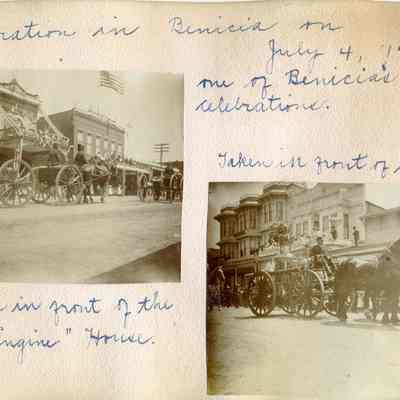 ration in Benicia on
July 4, 19
one of Benicia's
celebrations.
Taken in front of
in front of the
Engine" House.